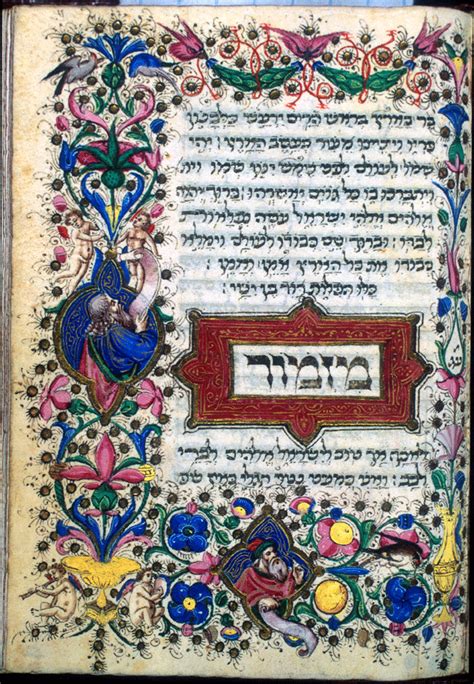 בר בארץ בראש הרים ירעש כלבנון
פריו ויציצו מעיר כעשב הארץ: יהי
שמו לעולם לפני שמש ינון שמו
ויתברכו בו כל גוים יאשרוהו: ברוך יהוה
אלהים אלהי ישראל עשה נפלאות
לבדו: וברוך שם כבודו לעולם וימלא
כבודו את כל הארץ אמן ואמן:
כלו תפלות דוד בן ישי:
עג
מזמור
לאסף אך טוב לישראל אלהים לברי
לבב: ואני כמעט נטוי רגלי כאין